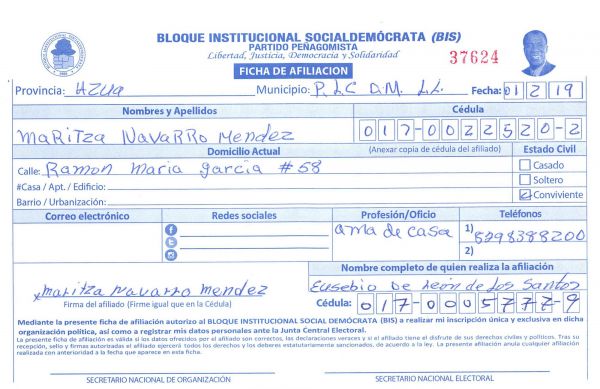 BLOQUE INSTITUCIONAL SOCIALDEMÓCRATA (BIS)
PARTIDO PEÑAGOMISTA
Libertad, Justicia, Democracia y Solidaridad
37624
FICHA DE AFILIACION
Provincia: AZUA Municipio: P.L.C D.M. L.L. Fecha: 01 2 19
Nombres y Apellidos Cédula
Maritza Navarro Mendez 017-0022520-2
Domicilio Actual (Anexar copia de cédula del afiliado) Estado Civil
Calle: Ramon Maria garcia #58 Casado
#Casa / Apt. / Edificio: Soltero
Barrio / Urbanización: Conviviente
Correo electrónico Redes sociales Profesión/Oficio Teléfonos
ama de casa 1) 8298388200
2)
Nombre completo de quien realiza la afiliación
Maritza Navarro Mendez Eusebio De León de Los Santos
Firma del afiliado (Firme igual que en la Cédula) Cédula: 017-0005777-9
Mediante la presente ficha de afiliación autorizo al BLOQUE INSTITUCIONAL SOCIAL DEMÓCRATA (BIS) a realizar mi inscripción única y exclusiva en dicha
organización política, así como a registrar mis datos personales ante la Junta Central Electoral.
La presente ficha de afiliación es válida si los datos ofrecidos por el afiliado son correctos, las declaraciones veraces y si el afiliado tiene el disfrute de sus derechos civiles y políticos. Tras su
recepción, sello y firmas autorizadas el afiliado ejercerá todos los derechos y los deberes estatutariamente sancionados, de acuerdo a la ley. La presente afiliación anula cualquier afiliación
realizada con anterioridad a la fecha que aparece en esta ficha.
SECRETARIO NACIONAL DE ORGANIZACIÓN SECRETARIO NACIONAL ELECTORAL